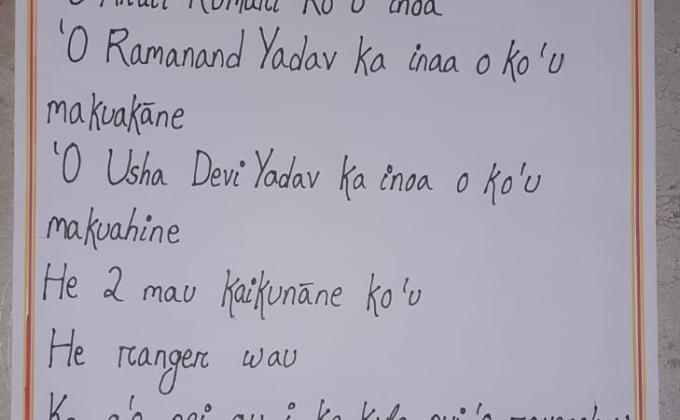 ko'u inoa
'O Ramanand Yadav ka inaa o ko'u
makuakāne
'O Usha Devi Yadav ka inoa o ko'u
makuahine
He 2 mau kaikunāne ko'u
He ranger wau